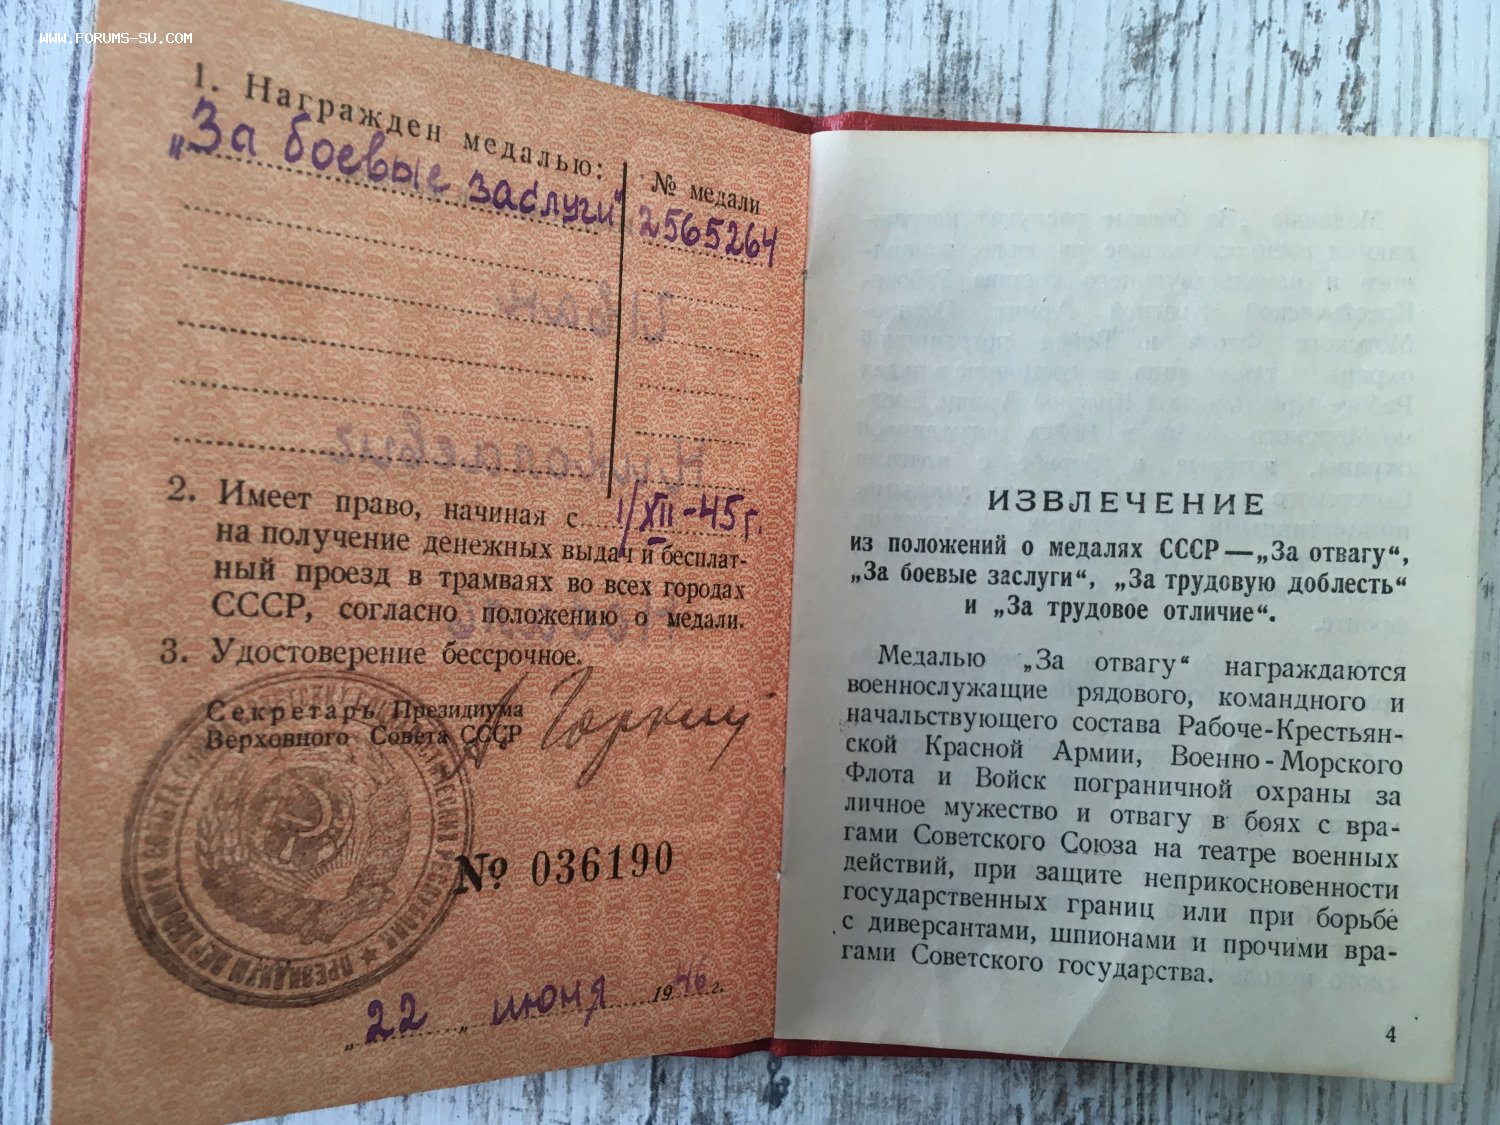 WWW.FORUMS-SU.COM
1. Награжден медалью:
№ медали
„За боевые заслуги“
2565264
2. Имеет право, начиная с 1/XII-45г.
на получение денежных выдач и бесплат-
ный проезд в трамваях во всех городах
СССР, согласно положению о медали.
3. Удостоверение бессрочное.
Секретарь Президиума
Верховного Совета СССР
А. Горкин
№ 036190
„22„ июня 1946 г.
ИЗВЛЕЧЕНИЕ
из положений о медалях СССР—„За отвагу“,
„За боевые заслуги“, „За трудовую доблесть“
и „За трудовое отличие“.
Медалью „За отвагу“ награждаются
военнослужащие рядового, командного и
начальствующего состава Рабоче-Крестьян-
ской Красной Армии, Военно-Морского
Флота и Войск пограничной охраны за
личное мужество и отвагу в боях с вра-
гами Советского Союза на театре военных
действий, при защите неприкосновенности
государственных границ или при борьбе
с диверсантами, шпионами и прочими вра-
гами Советского государства.
4